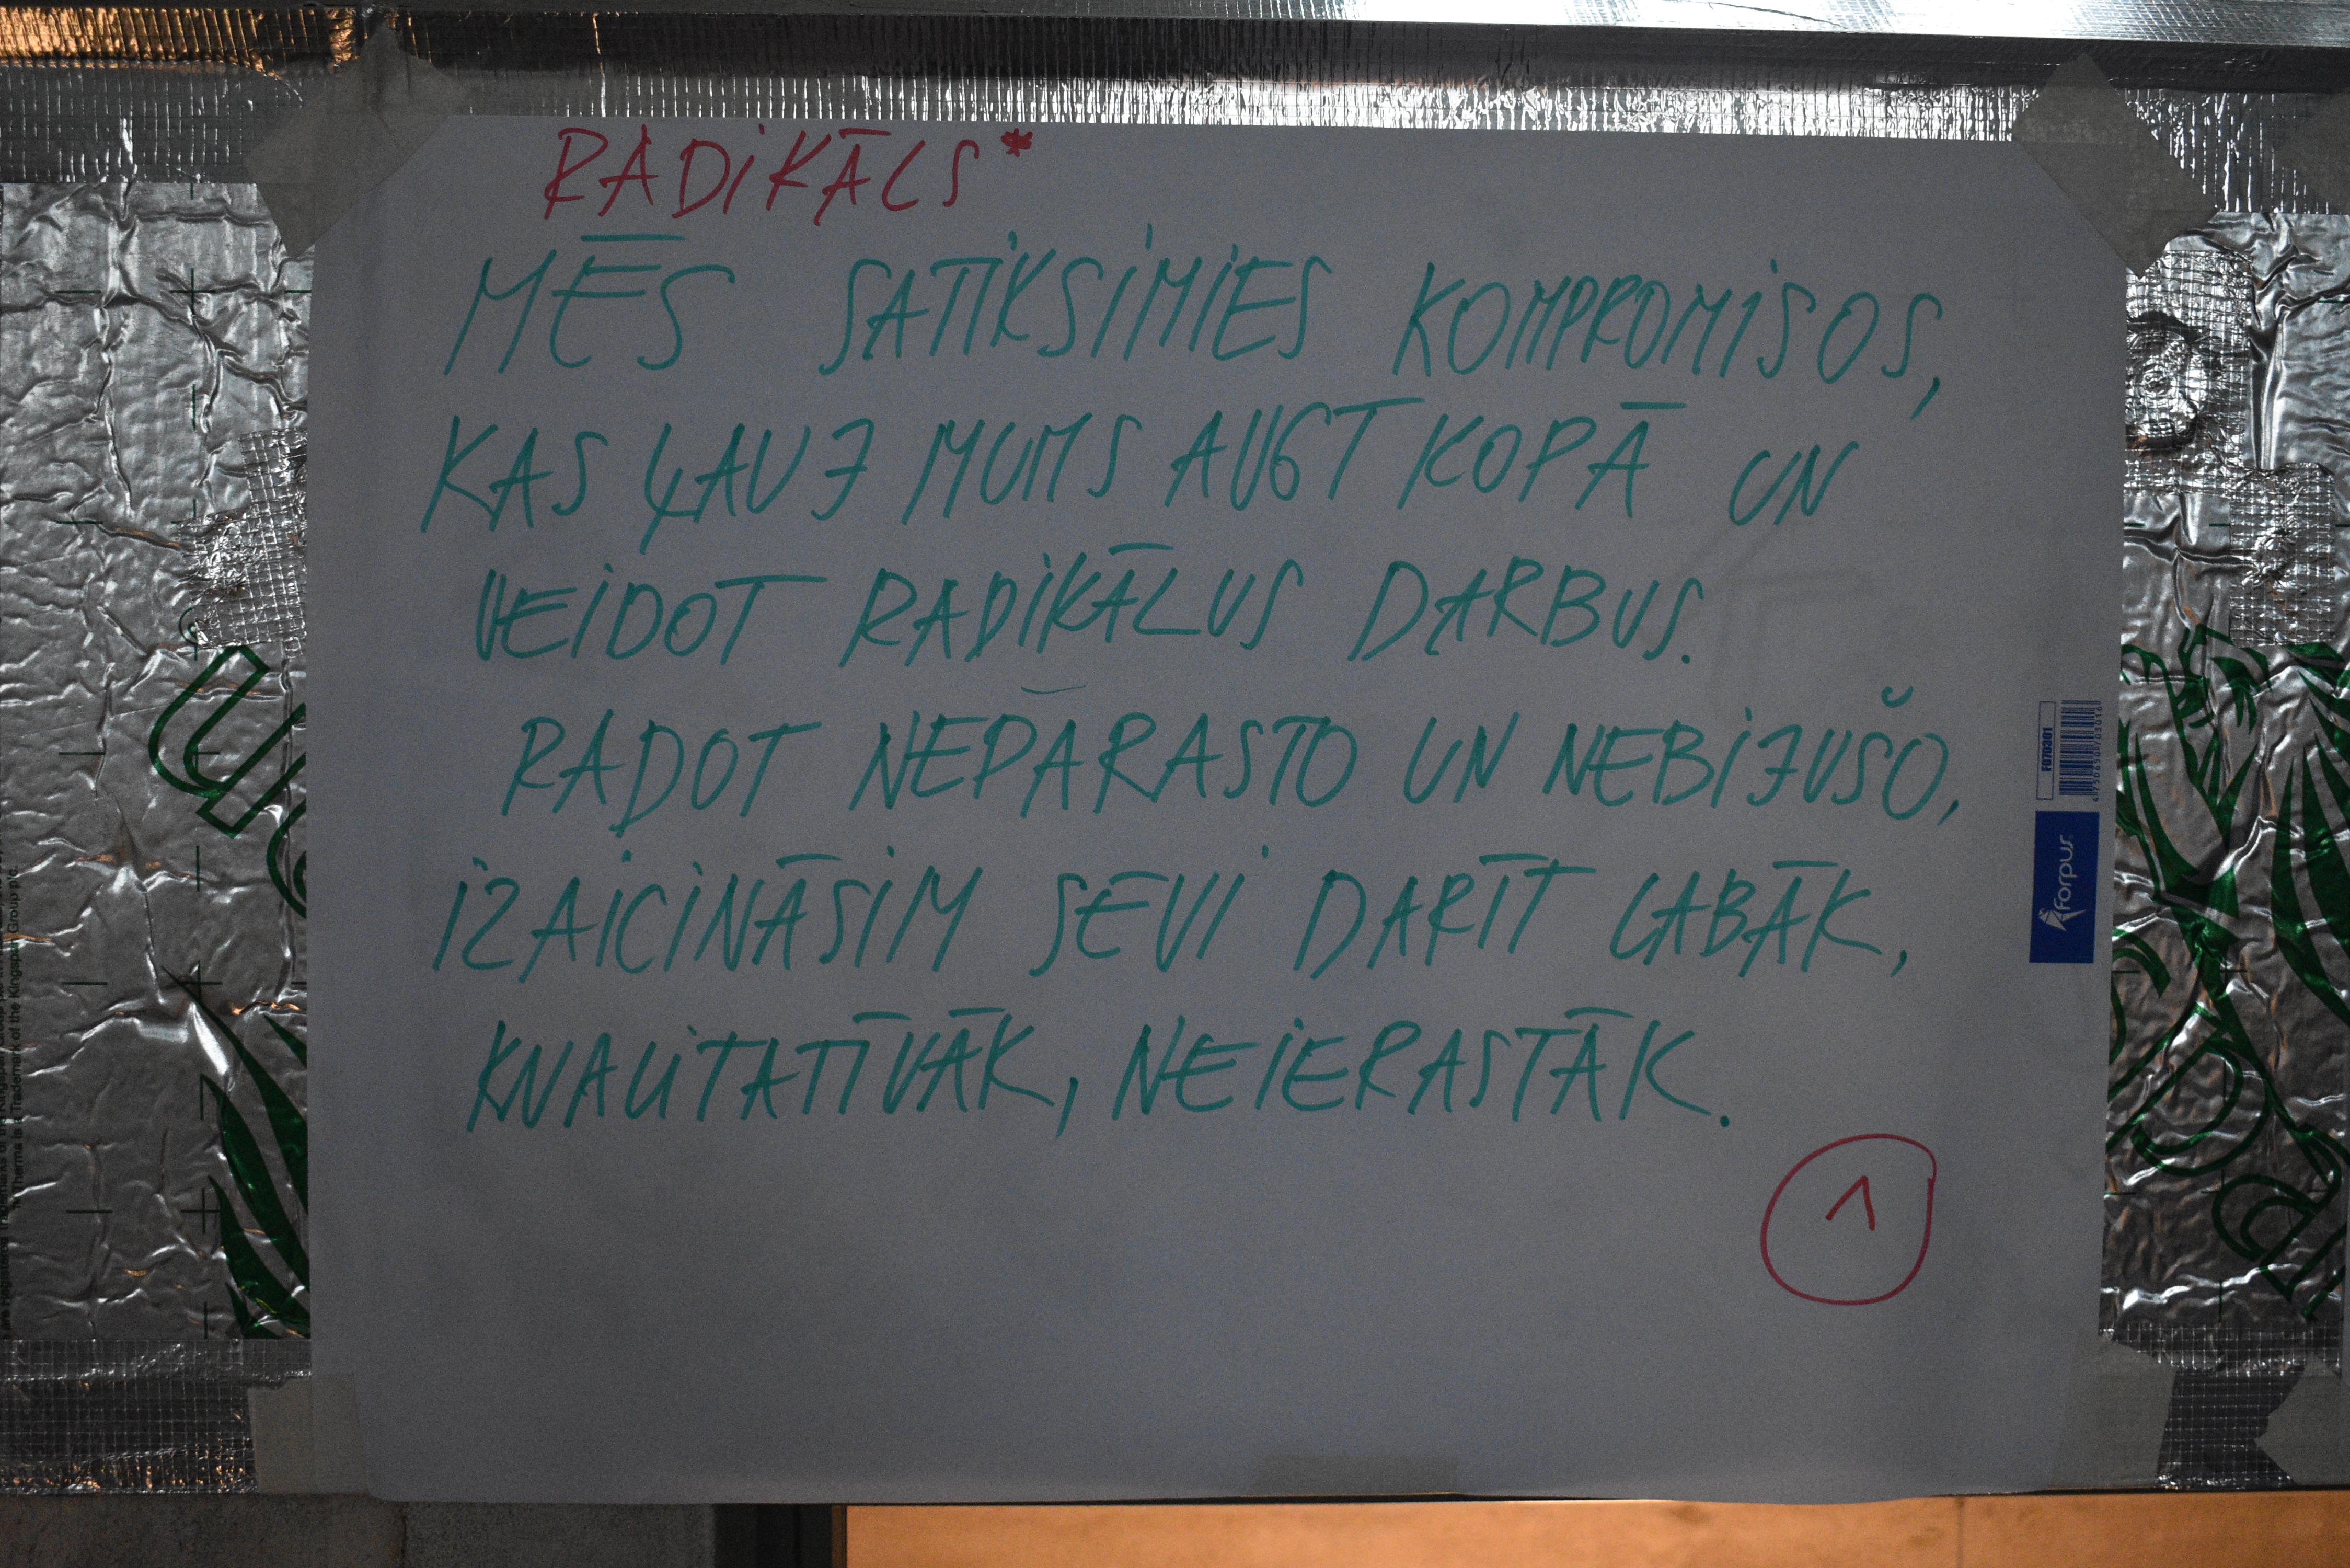 RADIKĀLS*
MĒS SATIKSIMIES KOMPROMISOS,
KAS ĻAUJ MUMS AUGT KOPĀ UN
VEIDOT RADIKĀLUS DARBUS.
RADOT NEPARASTO UN NEBIJUŠO,
IZAICINĀSIM SEVI DARĪT LABĀK,
KVALITATĪVĀK, NEIERASTĀK.
1
F070301
forpus